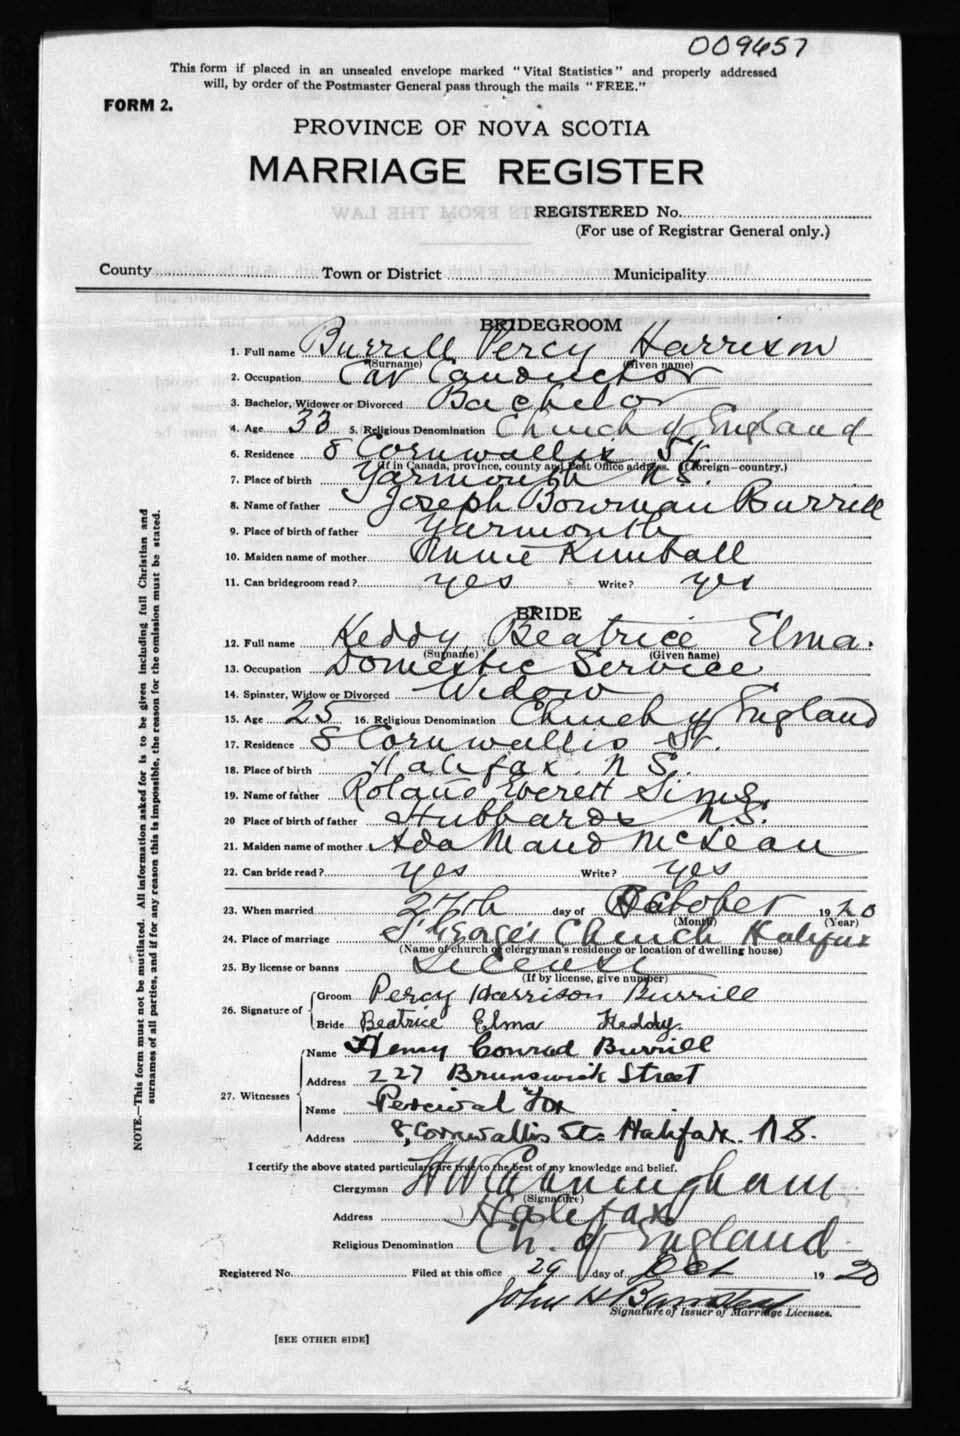 009657
This form if placed in an unsealed envelope marked "Vital Statistics" and properly addressed
will, by order of the Postmaster General pass through the mails "FREE."
FORM 2.
PROVINCE OF NOVA SCOTIA
MARRIAGE REGISTER
REGISTERED No.
(For use of Registrar General only.)
County Town or District Municipality
BRIDEGROOM
1. Full name Burrill Percy Harrison
(Surname) (Given name)
2. Occupation Car Conductor
3. Bachelor, Widower or Divorced Bachelor
4. Age 33 5. Religious Denomination Church of England
6. Residence 8 Cornwallis St.
(If in Canada, province, county and Post Office address. If foreign—country.)
7. Place of birth Yarmouth N.S.
8. Name of father Joseph Bowman Burrill
9. Place of birth of father Yarmouth
10. Maiden name of mother Annie Kimball
11. Can bridegroom read? yes Write? yes
BRIDE
12. Full name Keddy, Beatrice Elma.
(Surname) (Given name)
13. Occupation Domestic Service
14. Spinster, Widow or Divorced Widow
15. Age 25 16. Religious Denomination Church of England
17. Residence 8 Cornwallis St.
18. Place of birth Halifax. N.S.
19. Name of father Everett Sims
20 Place of birth of father Hubbards N.S.
21. Maiden name of mother Ada Maud McLean
22. Can bride read? yes Write? yes
23. When married 27th day of October 1920
(Month) (Year)
24. Place of marriage St George's Church Halifax
(Name of church or clergyman's residence or location of dwelling house)
25. By license or banns License
(If by license, give number)
26. Signature of Groom Percy Harrison Burrill
Bride Beatrice Elma Keddy.
27. Witnesses Name Henry Conrad Burrill
Address 227 Brunswick Street
Name Percival Fox
Address 8, Cornwallis St. Halifax. N.S.
I certify the above stated particulars are true to the best of my knowledge and belief.
Clergyman H W Cunningham
(Signature)
Address Halifax
Religious Denomination Ch. of England
Registered No. Filed at this office 29 day of Oct 1920
John H
Signature of Issuer of Marriage Licenses.
[SEE OTHER SIDE]
NOTE.—This form must not be mutilated. All information asked for is to be given including full Christian and
surnames of all parties, and if for any reason this is impossible, the reason for the omission must be stated.